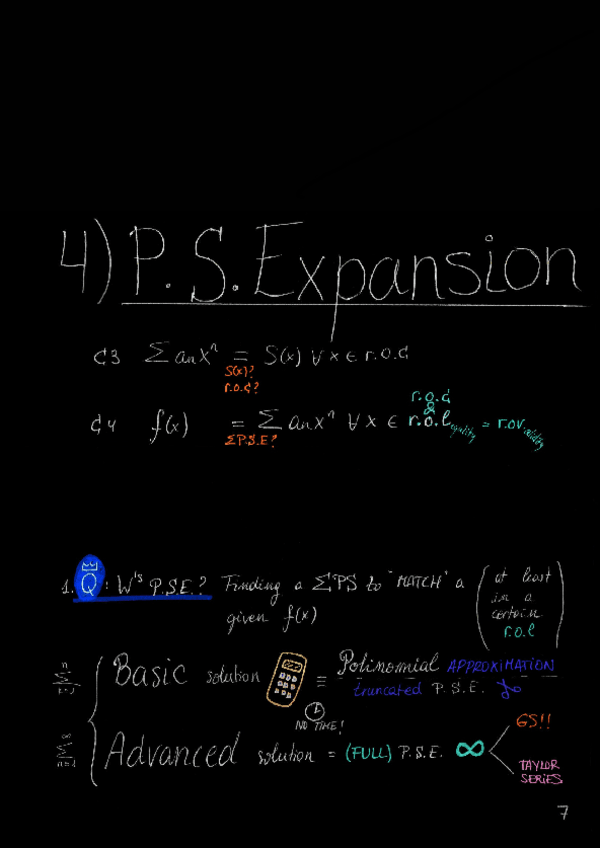 4) P.S. Expansion
₵3 Σ anxⁿ = S(x) ∀ x ∈ r.o.₵
S(x)?
r.o.₵?
r.o.₵
&
₵4 f(x) = Σ anxⁿ ∀ x ∈ r.o.e equality = r.o.v validity
ΣP.S.E?
1. Q: W's P.S.E.? Finding a ΣPS to "MATCH" a given f(x) (at least in a certain r.o.e)
Basic solution ≡ Polinomial APPROXIMATION
truncated P.S.E.
NO TIME!
Advanced solution = (FULL) P.S.E. ∞
GS!!
TAYLOR SERIES
7